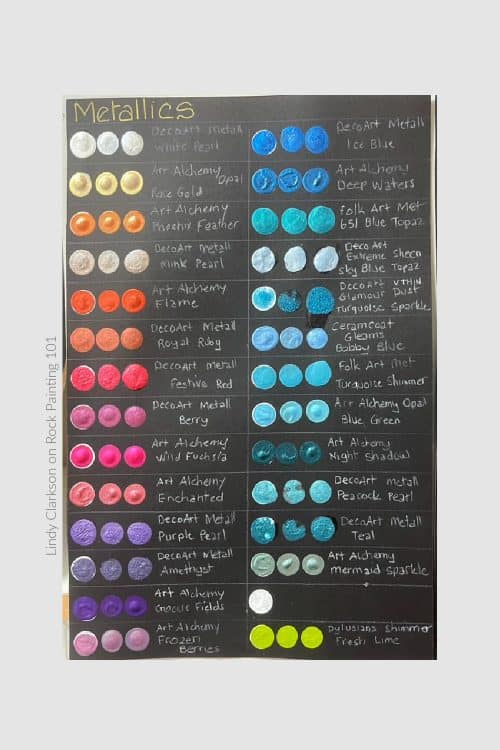 Metallics
DecoArt Metall
White Pearl
Art Alchemy
Opal
Rose Gold
Art Alchemy
Phoenix Feather
DecoArt Metall
Mink Pearl
Art Alchemy
Flame
DecoArt Metall
Royal Ruby
DecoArt Metall
Festive Red
DecoArt Metall
Berry
Art Alchemy
Wild Fuchsia
Art Alchemy
Enchanted
DecoArt Metall
Purple Pearl
DecoArt Metall
Amethyst
Art Alchemy
Crocus Fields
Art Alchemy
Frozen
Berries
DecoArt Metall
Ice Blue
Art Alchemy
Deep Waters
Folk Art Met
651 Blue Topaz
Deco Art
Extreme Sheen
Sky Blue Topaz
DecoArt
Glamour Dust
Turquoise Sparkle
Ceramcoat
Gleams
Blue
Folk Art Met
Turquoise Shimmer
Art Alchemy Opal
Blue Green
Art Alchemy
Night Shadow
DecoArt Metall
Peacock Pearl
DecoArt Metall
Teal
Art Alchemy
Mermaid Sparkle
Dylusions Shimmer
Fresh Lime
Lindy Clarkson on Rock Painting 101